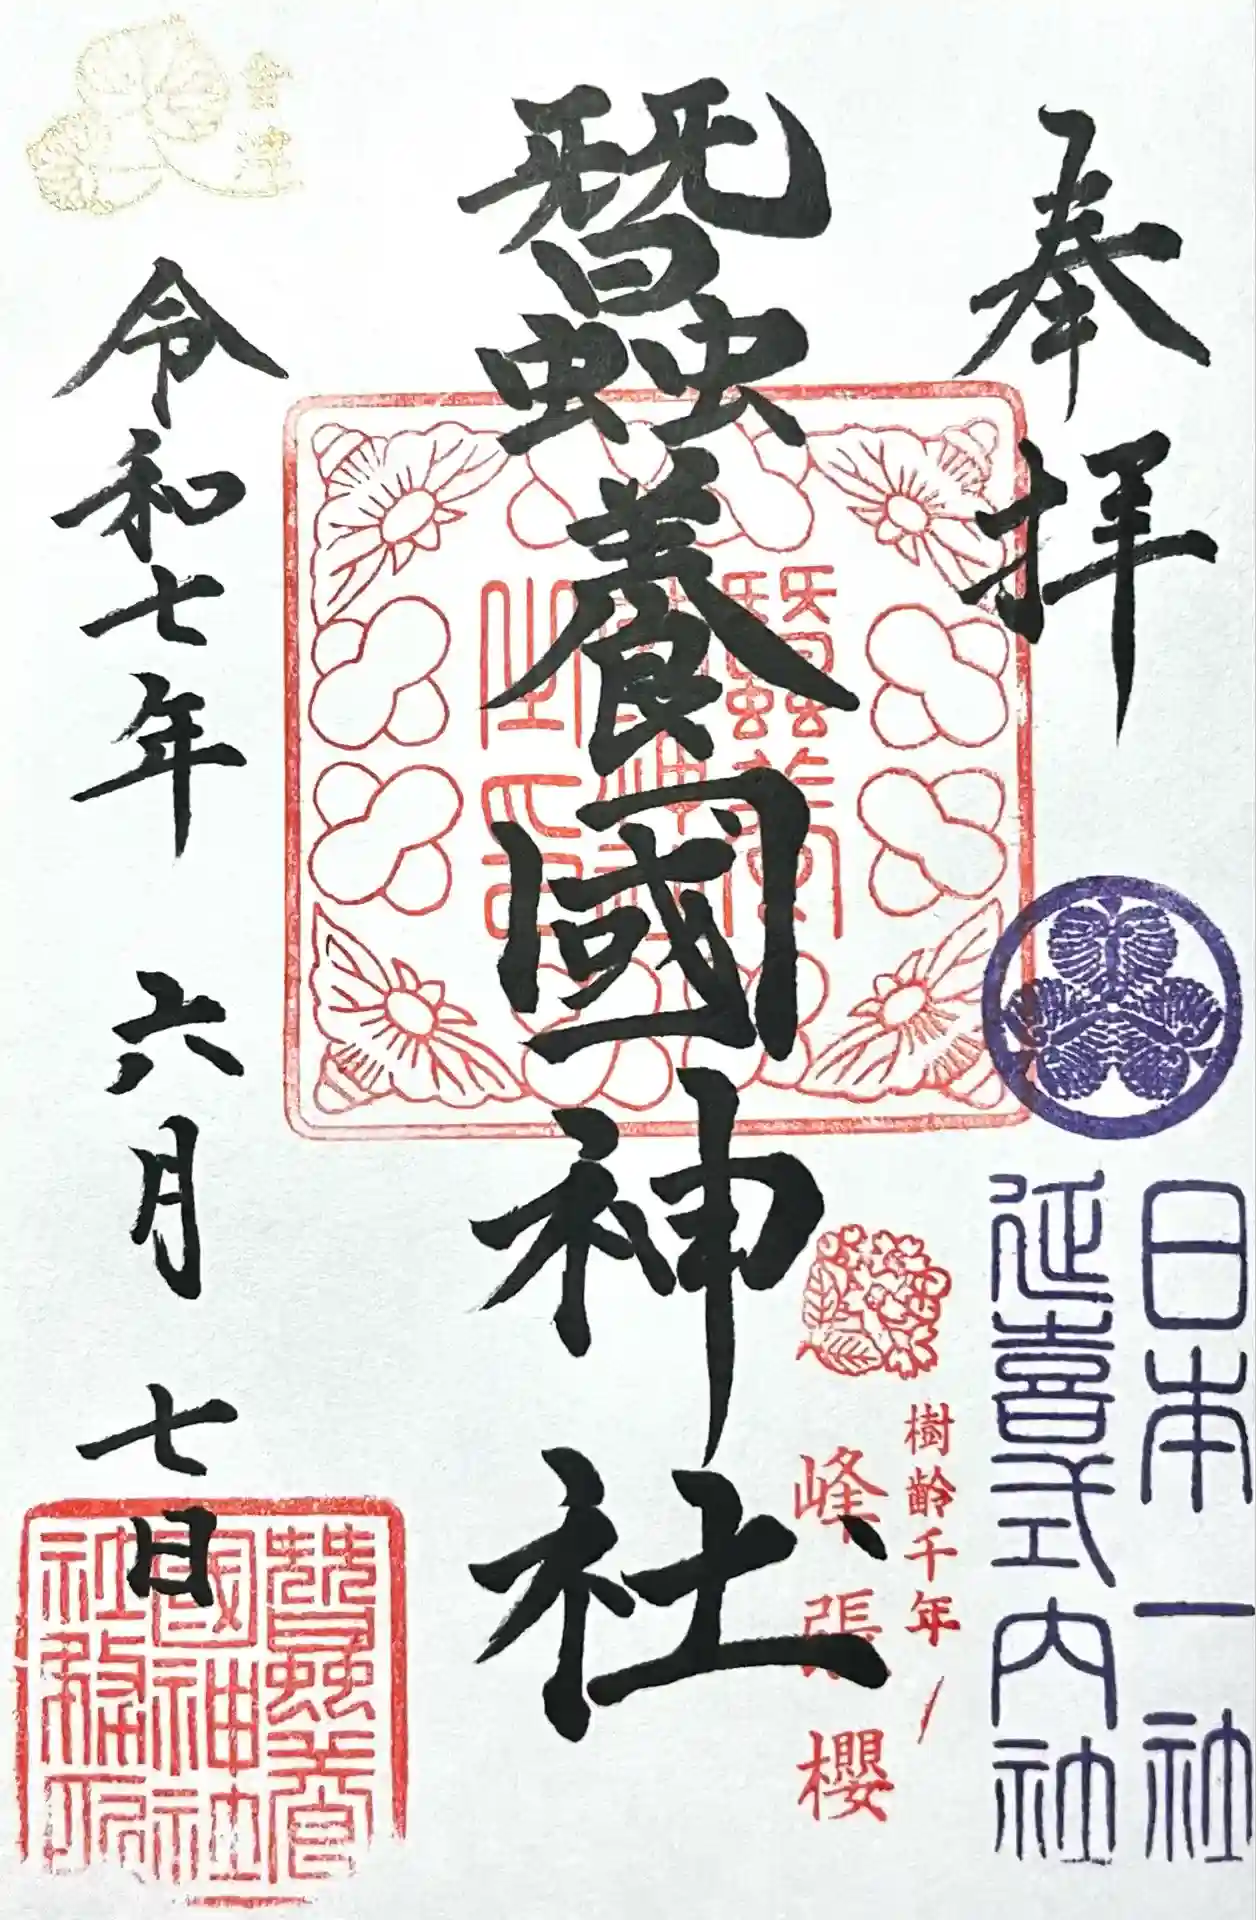 奉拝
日本一社
延喜式内社
樹齢千年
峰張櫻
蠶養國神社
蠶養
國神社
之印
令和七年 六月 七日
蠶養
國神社
社務所